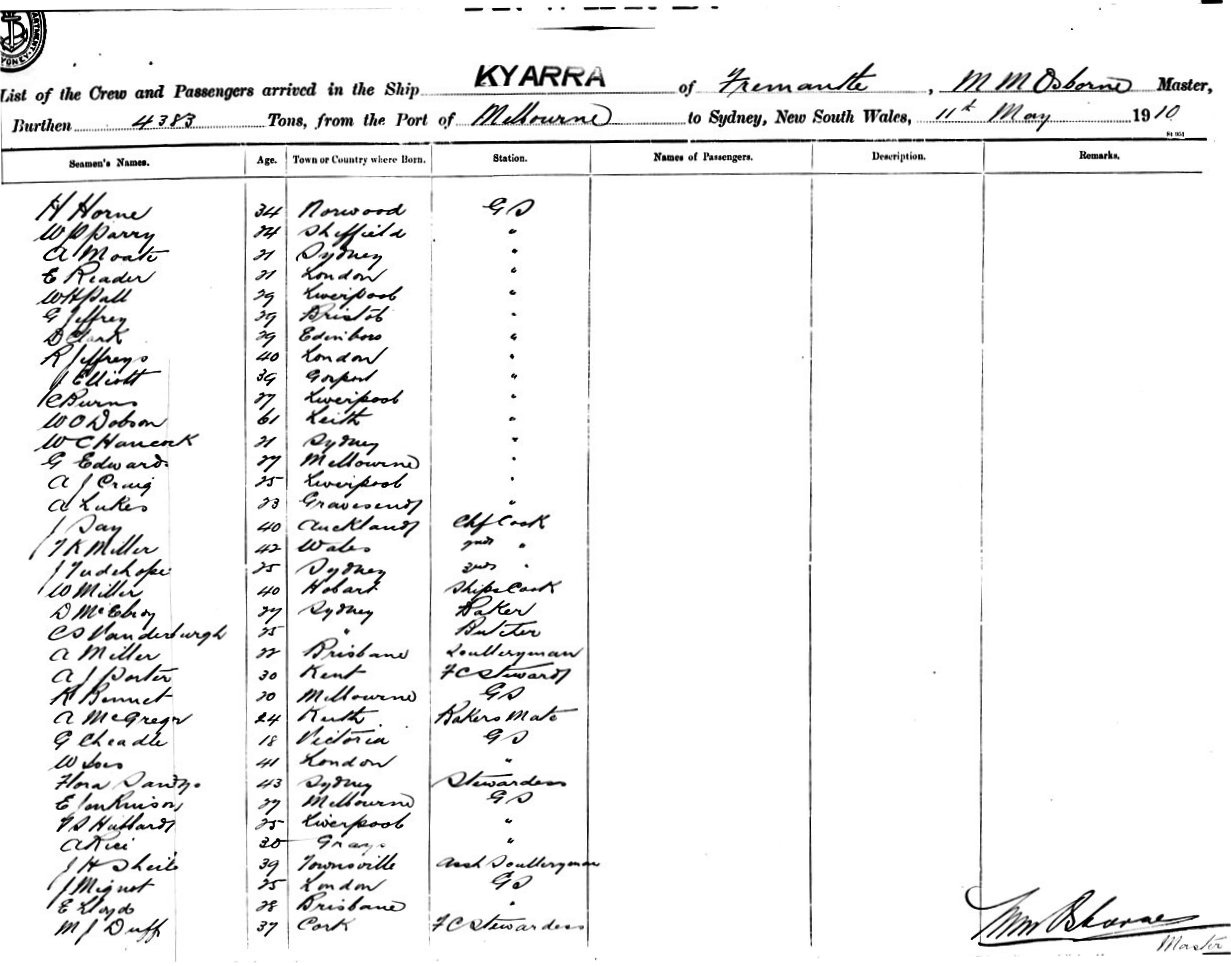 List of the Crew and Passengers arrived in the Ship KYARRA of Fremantle, M M Osborne Master,
Burthen 4383 Tons, from the Port of Melbourne to Sydney, New South Wales, 11th May 1910
Seamen's Names. Age. Town or Country where Born. Station. Names of Passengers. Description. Remarks.
H Horne 34 Norwood G S
W P Parry 24 Sheffield "
A Moate 21 Sydney "
E Reader 21 London "
W H Hall 29 Liverpool "
G Jeffrey 39 Bristol "
D Clark 29 Edinboro "
R Jeffreys 40 London "
J Elliott 39 Gosport "
C Burns 27 Liverpool "
W O Dobson 61 Leith "
W C Hancock 21 Sydney "
G Edwards 27 Melbourne "
A J Craig 25 Liverpool "
A Lukes 23 Gravesend "
J Day 40 Auckland Chf Cook
T K Miller 42 Wales 2nd "
J Tudehope 25 Sydney 3rd "
W Miller 40 Hobart Ships Cook
D McElroy 27 Sydney Baker
C S Vanderburgh 25 " Butcher
A Miller 22 Brisbane Sculleryman
A J Porter 30 Kent F C Steward
K Bennet 20 Melbourne G S
A McGregor 24 Bakers Mate
G Cheadle 18 Victoria G S
W 41 London "
Flora Sandys 43 Sydney Stewardess
E Tonkinson 27 Melbourne G S
Hubbard 25 Liverpool "
A Rice 20 Grays "
J H Sheils 39 Townsville Asst Sculleryman
J Mignot 25 London G S
E Lloyd 28 Brisbane "
M J Duff 37 Cork F C Stewardess
Wm Osborne
Master